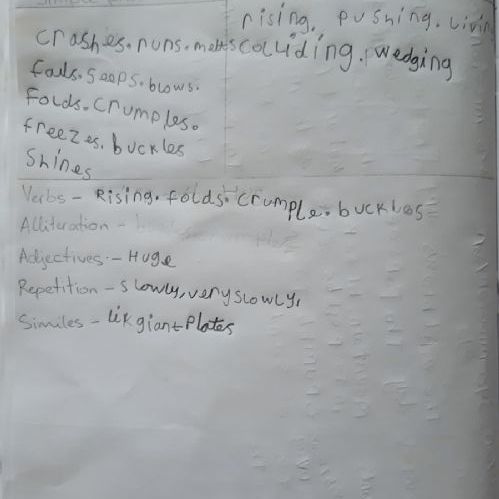 rising. pushing. livin
crashes. runs. melts colliding. wedging
falls. seeps. blows.
Folds. Crumples.
freezes. buckles
Shines
Verbs - Rising. folds. crumple. buckles
Alliteration -
Adjectives - Huge
Repetition - slowly, very slowly,
Similes - lik giant Plates